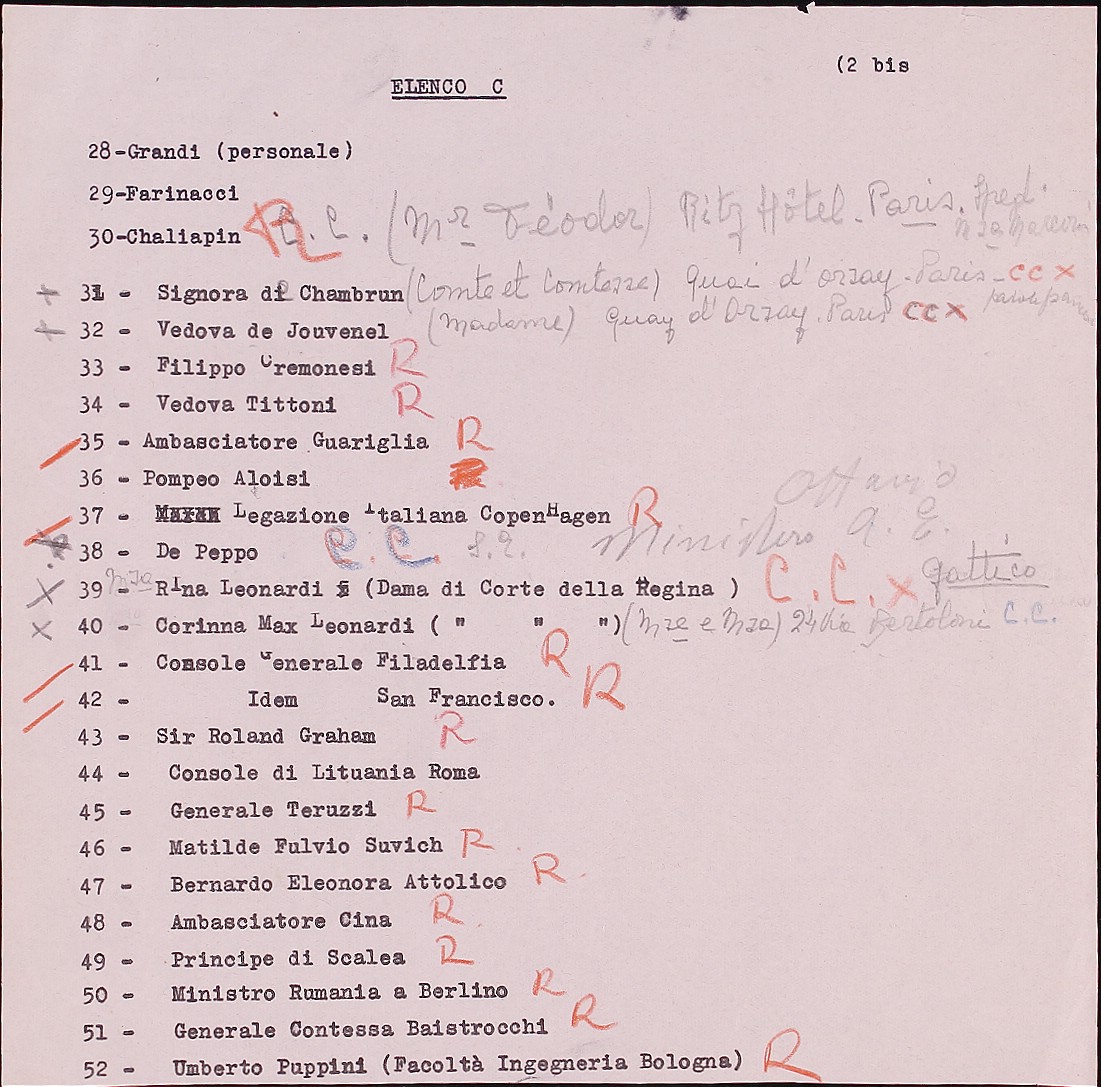 (2 bis
ELENCO C
28-Grandi (personale)
29-Farinacci
30-Chaliapin R C.C. (Mr Féodor) Ritz Hôtel - Paris.
+ 31 - Signora de Chambrun (Comte et Comtesse) Quai d'orsay - Paris - CC X
+ 32 - Vedova de Jouvenel (Madame) Quay d'Orsay. Paris CC X
33 - Filippo Cremonesi R
34 - Vedova Tittoni R
35 - Ambasciatore Guariglia R
36 - Pompeo Aloisi
37 - Legazione Italiana CopenHagen R
38 - De Peppo C.C. S.E. Ottavio Ministero A. E.
X 39 - RIna Leonardi (Dama di Corte della Regina ) C. C. X Gattico
X 40 - Corinna Max Leonardi ( " " ") 24 Via Bertoloni C.C.
41 - Console Generale Filadelfia R
42 - Idem San Francisco. R
43 - Sir Roland Graham R
44 - Console di Lituania Roma
45 - Generale Teruzzi R
46 - Matilde Fulvio Suvich R
47 - Bernardo Eleonora Attolico R
48 - Ambasciatore Cina R
49 - Principe di Scalea R
50 - Ministro Rumania a Berlino R
51 - Generale Contessa Baistrocchi R
52 - Umberto Puppini (Facoltà Ingegneria Bologna) R